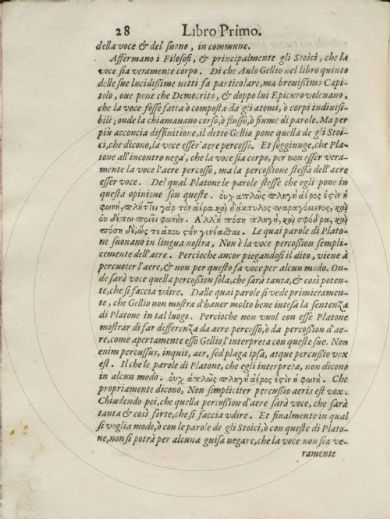 28 Libro Primo.
della voce & del suono, in commune.
Affermano i Filosofi, & principalmente gli Stoici, che la
voce sia veramente corpo. Di che Aulo Gellio nel libro quinto
delle sue lucidissime notti fa particolare, ma breuissimo Capi-
tolo, oue pone che Democrito, & doppo lui Epicuro voleuano,
che la voce fosse fatta ò composta da gli atomi, ò corpi indiuisi-
bili; onde la chiamauano corso, ò flusso, ò fiume di parole. Ma per
più acconcia diffinitione, il detto Gellio pone quella de gli Stoi-
ci, che dicono, la voce esser' aere percosso. Et soggiunge, che Pla-
tone all'incontro nega, che la voce sia corpo, per non esser vera-
mente la voce l'aere percosso, ma la percossione stessa dell'aere
esser voce. Del qual Platone le parole stesse che egli pone in
questa opinione son queste. οὐχ ἁπλῶς πληγὴ ἀέρος ἐςὶν ἡ
φωνή, πλήττει γὰρ τὸν ἀέρα καὶ ὁ δάκτυλος παραγόμενος, καὶ
οὐ δέπω ποιεῖ φωνήν. Ἀλλ' ἡ πόση πληγή, καὶ σφόδρα, καὶ
πόση
Le quai parole di Plato-
ne suonano in lingua nostra, Non è la voce percossion sempli-
cemente dell'aere. Percioche ancor piegandosi il dito, viene à
percuoter l'aere, & non per questo fa voce per alcun modo. On-
de sarà voce quella percossion sola, che sarà tanta, & così poten-
te, che si faccia vdire. Dalle quai parole si vede primieramen-
te, che Gellio non mostra d'hauer molto bene intesa la sentenza
di Platone in tal luogo. Percioche non vuol con esse Platone
mostrar di far differenza da aere percosso, à da percossion d'ae-
re, come apertamente esso Gellio l'interpreta con queste sue. Non
enim percussus, inquit, aer, sed plaga ipsa, atque percussio vox
est. Il che le parole di Platone, che egli interpreta, non dicono
in alcun modo. οὐχ ἁπλῶς πληγὴ ἀέρος ἐςὶν ἡ φωνή. Che
propriamente dicono, Non simpliciter percussio aeris est vox.
Chiudendo poi, che quella percossion d'aere sarà voce, che sarà
tanta & così forte, che si faccia vdire. Et finalmente in qual
si voglia modo, ò con le parole de gli Stoici, ò con queste di Plato-
ne, non si potrà per alcuna guisa negare, che la voce non sia ve-
ramente